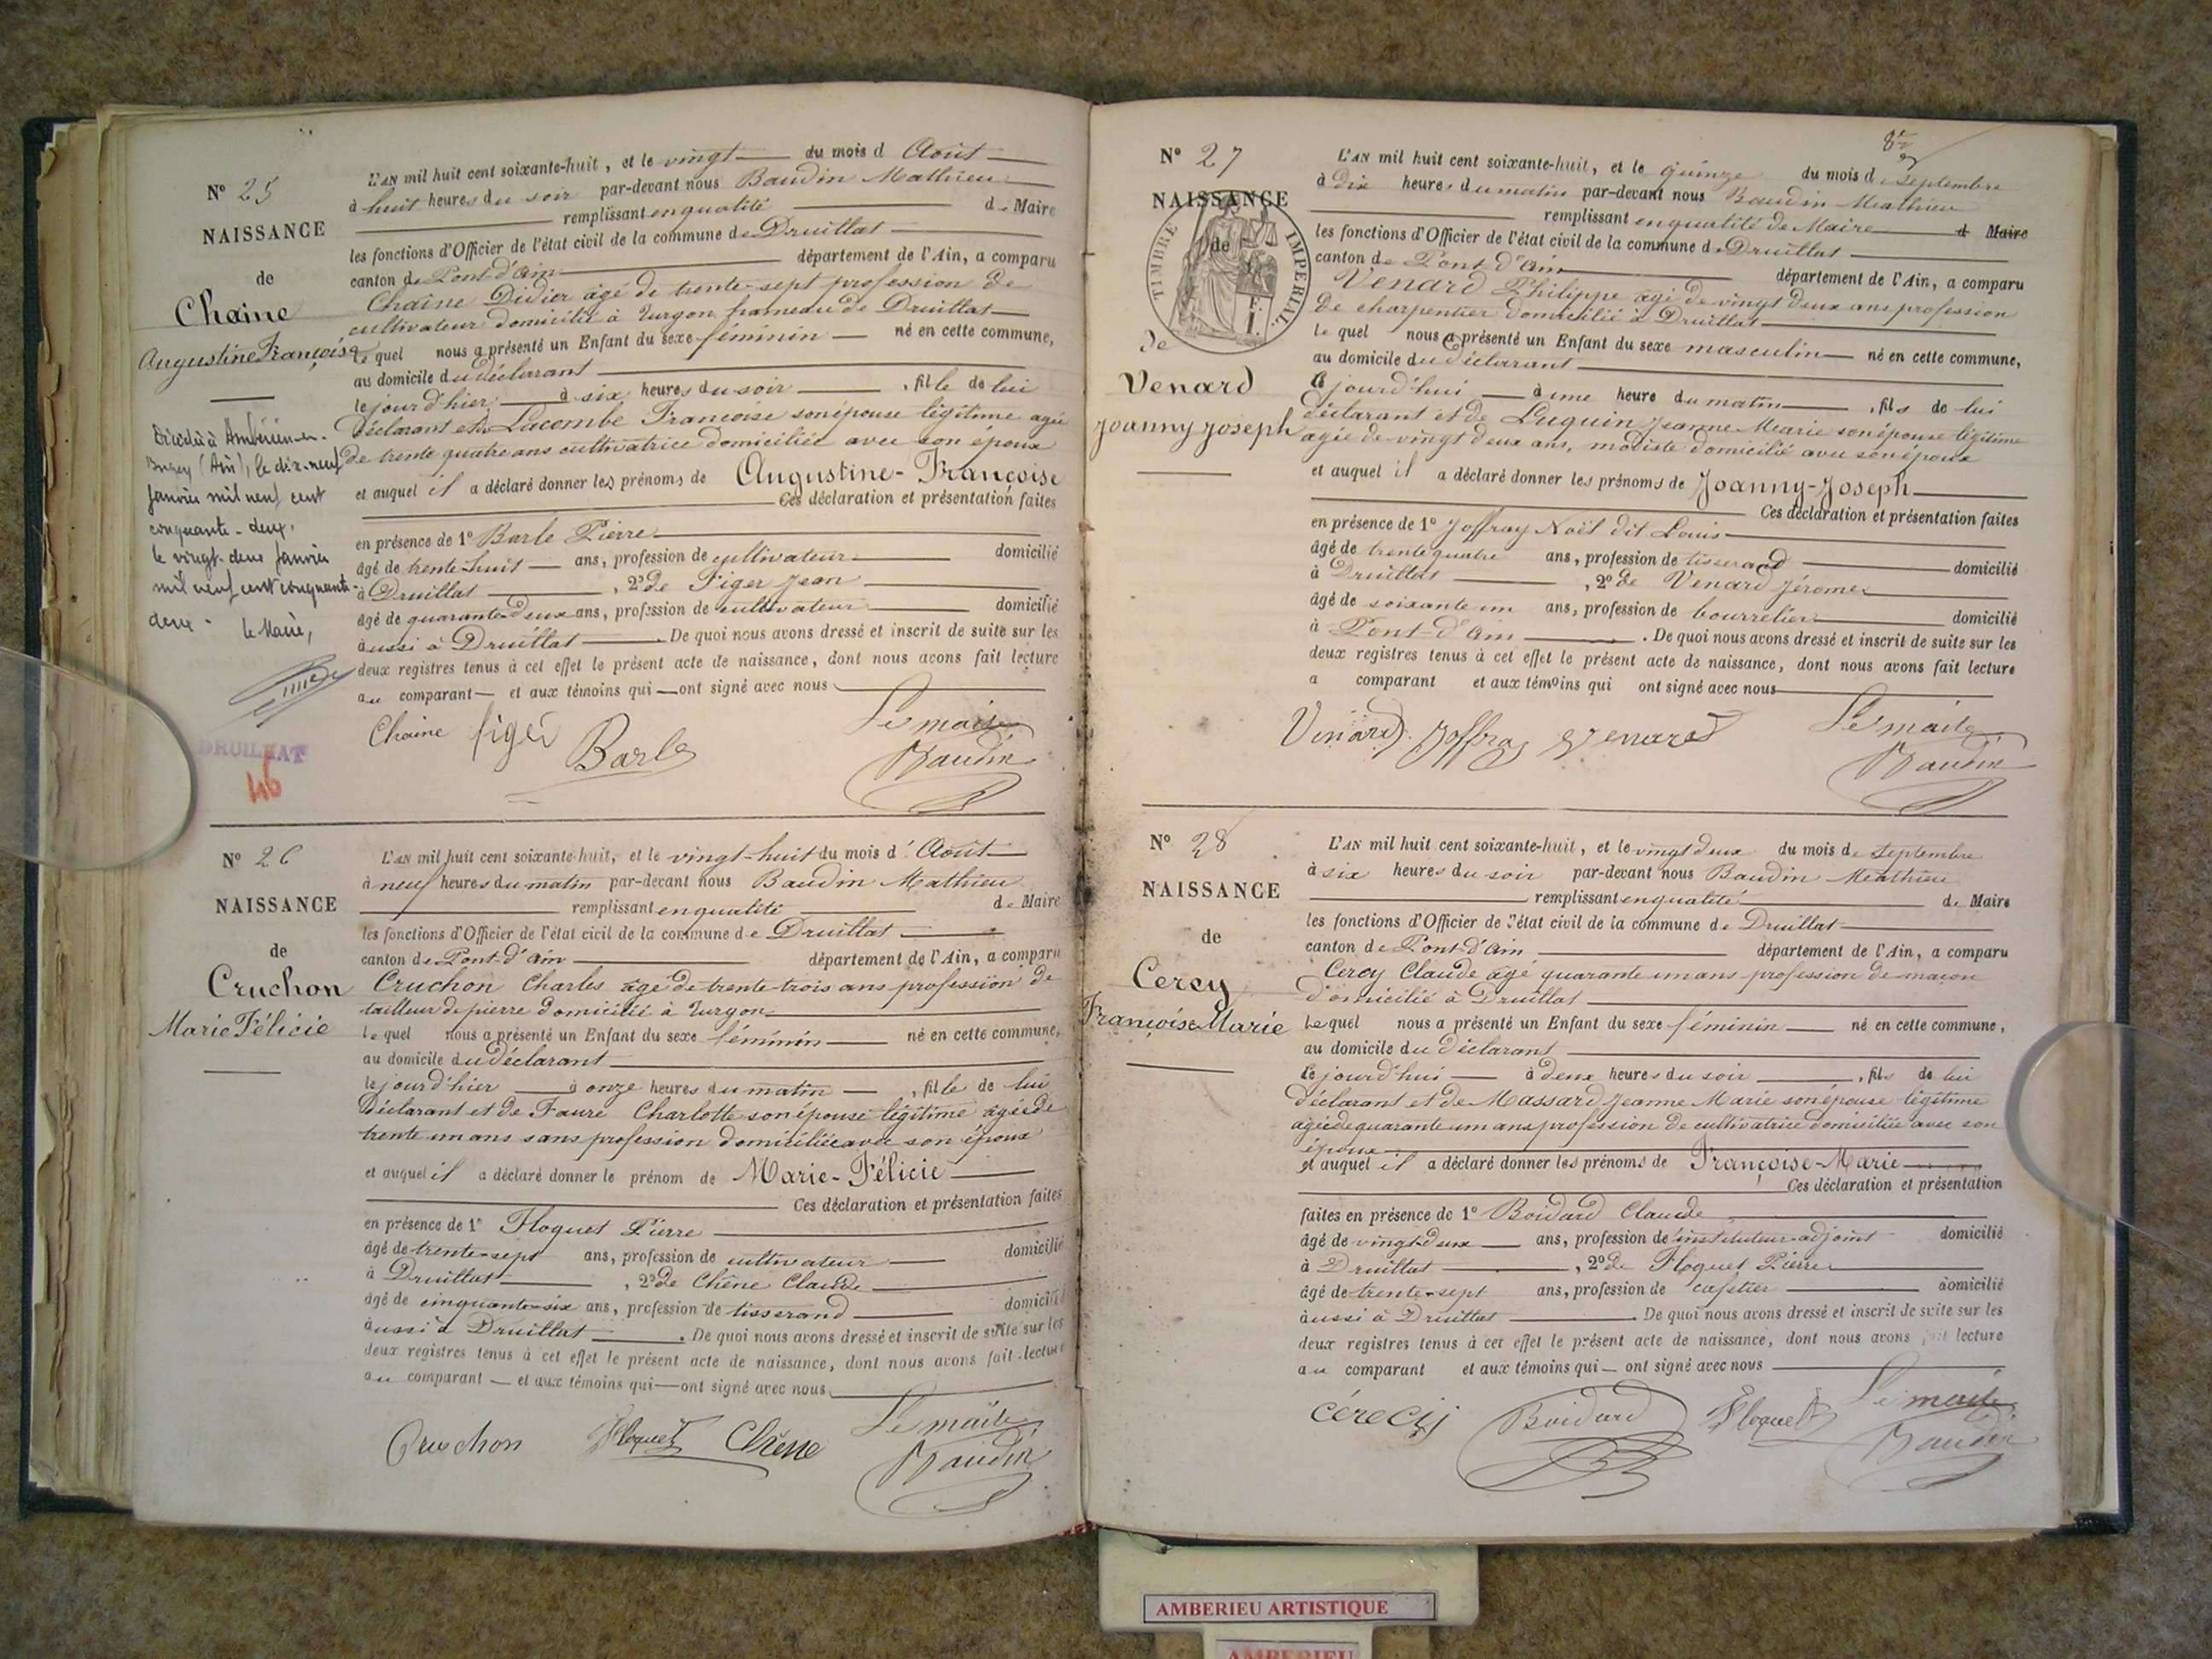 N° 25
NAISSANCE
de
Chaine
Augustine Françoise
Décédée à Ambérieu-en-
Bugey (Ain), le dix-neuf
janvier mil neuf cent
cinquante-deux.
le vingt-deux janvier
mil neuf cent cinquante-
deux.
le Maire,
DRUILLAT
46
L'AN mil huit cent soixante-huit, et le vingt du mois d Août
à huit heures du soir par-devant nous Baudin Mathieu
remplissant en qualité de Maire
les fonctions d'Officier de l'état civil de la commune de Druillat
canton de Pont-d'Ain département de l'Ain, a comparu
Chaine Didier âgé de trente-sept profession de
cultivateur domicilié à Turgon hameau de Druillat
le quel nous a présenté un Enfant du sexe féminin né en cette commune,
au domicile du déclarant
le jour d'hier à six heures du soir, fille de lui
déclarant et de Lacombe Françoise son épouse légitime agée
de trente quatre ans cultivatrice domiciliée avec son époux
et auquel il a déclaré donner les prénoms de Augustine-Françoise
Ces déclaration et présentation faites
en présence de 1° Barle Pierre
âgé de trente-huit ans, profession de cultivateur domicilié
à Druillat, 2° de Figer Jean
âgé de quarante-deux ans, profession de cultivateur domicilié
aussi à Druillat. De quoi nous avons dressé et inscrit de suite sur les
deux registres tenus à cet effet le présent acte de naissance, dont nous avons fait lecture
au comparant et aux témoins qui ont signé avec nous
Chaine figer Barle Le maire
Baudin
N° 26
NAISSANCE
de
Cruchon
Marie Félicie
L'AN mil huit cent soixante-huit, et le vingt-huit du mois d'Août
à neuf heures du matin par-devant nous Baudin Mathieu
remplissant en qualité de Maire
les fonctions d'Officier de l'état civil de la commune de Druillat
canton de Pont-d'Ain département de l'Ain, a comparu
Cruchon Charles âgé de trente-trois ans profession de
tailleur de pierre domicilié à Turgon
le quel nous a présenté un Enfant du sexe féminin né en cette commune,
au domicile du déclarant
le jour d'hier à onze heures du matin, fille de lui
déclarant et de Faure Charlotte son épouse légitime agée de
trente un ans sans profession domiciliée avec son époux
et auquel il a déclaré donner le prénom de Marie-Félicie
Ces déclaration et présentation faites
en présence de 1° Floquet Pierre
âgé de trente-sept ans, profession de cultivateur domicilié
à Druillat, 2° de Chêne Claude
âgé de cinquante-six ans, profession de tisserand domicilié
aussi à Druillat. De quoi nous avons dressé et inscrit de suite sur les
deux registres tenus à cet effet le présent acte de naissance, dont nous avons fait lecture
au comparant et aux témoins qui ont signé avec nous
Cruchon Floquet Chêne Le maire
Baudin
N° 27
NAISSANCE
de
TIMBRE IMPERIAL
de
Venard
Joanny Joseph
L'AN mil huit cent soixante-huit, et le quinze du mois de Septembre
à dix heures du matin par-devant nous Baudin Mathieu
remplissant en qualité de Maire d Maire
les fonctions d'Officier de l'état civil de la commune de Druillat
canton de Pont-d'Ain département de l'Ain, a comparu
Venard Philippe agé de vingt deux ans profession
de charpentier domicilié à Druillat
le quel nous a présenté un Enfant du sexe masculin né en cette commune,
au domicile du déclarant
le jourd'hui à une heure du matin, fils de lui
déclarant et de Luquin Jeanne Marie son épouse légitime
agée de vingt deux ans, modiste domicilié avec son époux
et auquel il a déclaré donner les prénoms de Joanny-Joseph
Ces déclaration et présentation faites
en présence de 1° Joffray Noël dit Louis
âgé de trente quatre ans, profession de tisserand domicilié
à Druillat, 2° de Venard Jérome
âgé de soixante un ans, profession de bourrelier domicilié
à Pont-d'Ain. De quoi nous avons dressé et inscrit de suite sur les
deux registres tenus à cet effet le présent acte de naissance, dont nous avons fait lecture
a comparant et aux témoins qui ont signé avec nous
Venard Joffray Venard Le maire
Baudin
N° 28
NAISSANCE
de
Cerey
Françoise Marie
L'AN mil huit cent soixante-huit, et le vingt deux du mois de Septembre
à six heures du soir par-devant nous Baudin Mathieu
remplissant en qualité de Maire
les fonctions d'Officier de l'état civil de la commune de Druillat
canton de Pont-d'Ain département de l'Ain, a comparu
Cerey Claude agé quarante un ans profession de maçon
domicilié à Druillat
le quel nous a présenté un Enfant du sexe féminin né en cette commune,
au domicile du déclarant
le jourd'hui à deux heures du soir, fils de lui
déclarant et de Massard Jeanne Marie son épouse légitime
agée de quarante un ans profession de cultivatrice domiciliée avec son
époux
et auquel il a déclaré donner les prénoms de Françoise-Marie
Ces déclaration et présentation
faites en présence de 1° Boidard Claude
âgé de vingt-deux ans, profession de instituteur-adjoint domicilié
à Druillat, 2° de Floquet Pierre
âgé de trente-sept ans, profession de cafetier domicilié
aussi à Druillat. De quoi nous avons dressé et inscrit de suite sur les
deux registres tenus à cet effet le présent acte de naissance, dont nous avons fait lecture
au comparant et aux témoins qui ont signé avec nous
cérecy Boidard Floquet Le maire
Baudin
AMBERIEU ARTISTIQUE
AMBERIEU